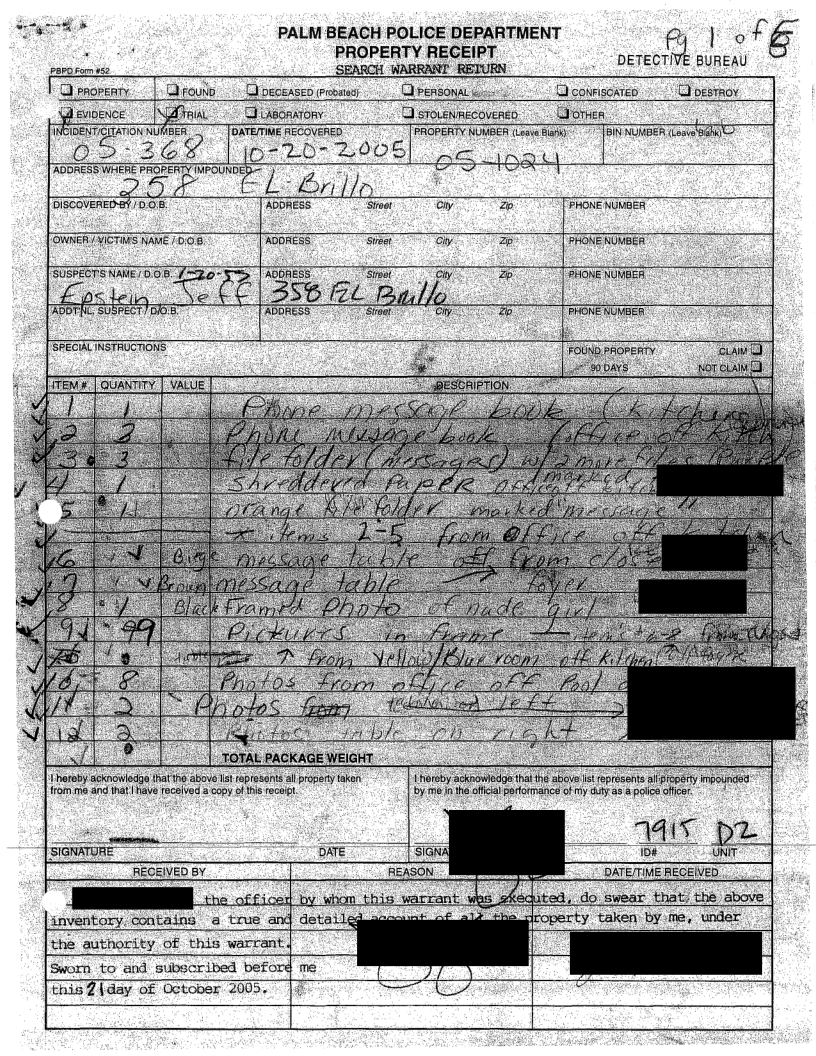 PALM BEACH POLICE DEPARTMENT
PROPERTY RECEIPT
SEARCH WARRANT RETURN
Pg 1 of
DETECTIVE BUREAU
PBPD Form #52
PROPERTY FOUND DECEASED (Probated) PERSONAL CONFISCATED DESTROY
EVIDENCE TRIAL LABORATORY STOLEN/RECOVERED OTHER
INCIDENT/CITATION NUMBER DATE/TIME RECOVERED PROPERTY NUMBER (Leave Blank) BIN NUMBER (Leave Blank)
05-368 10-20-2005 05-1024
ADDRESS WHERE PROPERTY IMPOUNDED
258 EL-Brillo
DISCOVERED BY / D.O.B. ADDRESS Street City Zip PHONE NUMBER
OWNER / VICTIM'S NAME / D.O.B. ADDRESS Street City Zip PHONE NUMBER
SUSPECT'S NAME / D.O.B. 1-20-53 ADDRESS Street City Zip PHONE NUMBER
Epstein Jeff 358 EL Brillo
ADDT'NL. SUSPECT / D.O.B. ADDRESS Street City Zip PHONE NUMBER
SPECIAL INSTRUCTIONS FOUND PROPERTY CLAIM
90 DAYS NOT CLAIM
ITEM # QUANTITY VALUE DESCRIPTION
1 1 Phone message book (Kitchen
2 Phone message book (office off Kitch
3 3 file folder (messages) w/ 2 more files (Purple
4 1 Shreddered Paper
5 orange file folder marked "message"
* items 2-5 from office off
6 Biege message table from
7 Brown message table foyer
8 1 Black Framed Photo of nude girl
9 Pickurs in frame
↑ from Yellow/Blue room off Kitchen
10 8 Photos from office off Pool
11 2 Photos left
12 2 Photos table on right
TOTAL PACKAGE WEIGHT
I hereby acknowledge that the above list represents all property taken
from me and that I have received a copy of this receipt.
I hereby acknowledge that the above list represents all property impounded
by me in the official performance of my duty as a police officer.
7915 D2
SIGNATURE DATE SIGNA ID# UNIT
RECEIVED BY REASON DATE/TIME RECEIVED
the officer by whom this warrant was executed, do swear that the above
inventory contains a true and detailed account of all the property taken by me, under
the authority of this warrant.
Sworn to and subscribed before me
this 21 day of October 2005.